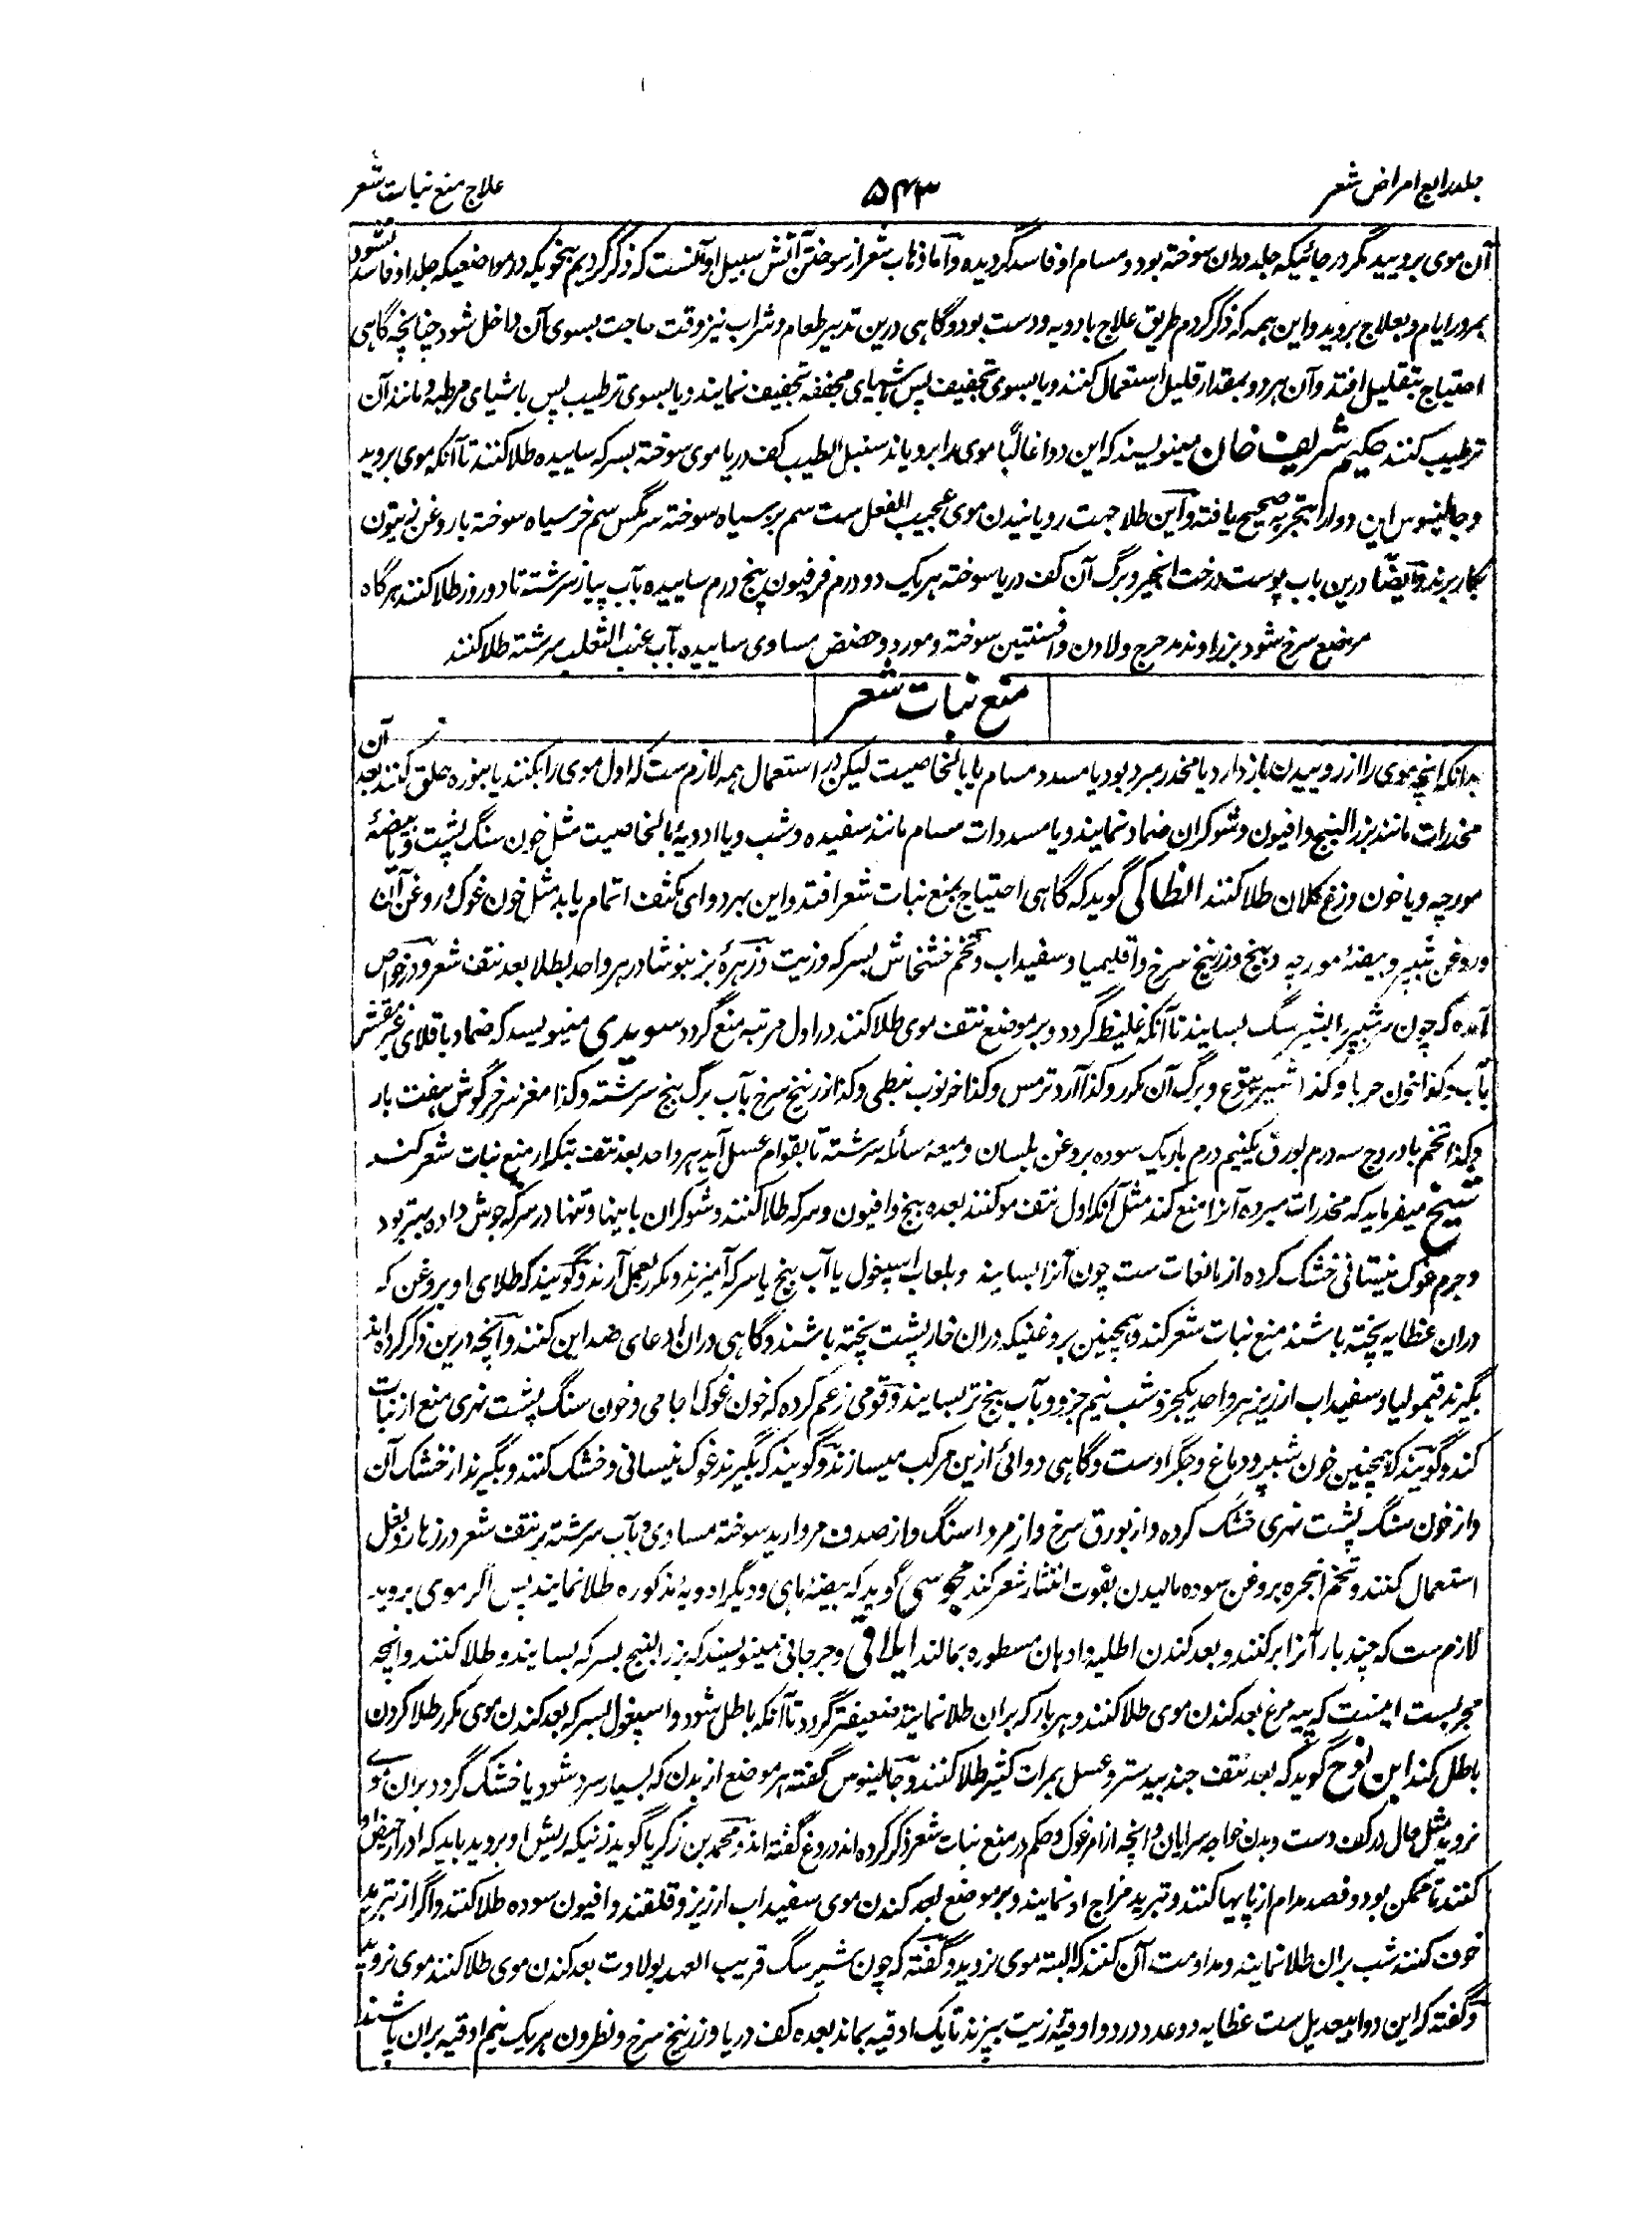 جلد رابع امراض شعر
۵۴۳
علاج منع نبات شعر
آن موی برویید مگر در جائیکه جلد دران سوخته بود و مسام او فاسد گردیده و اما ذهاب شعر از سوختن آتش سبیل او آنست که ذکر کردیم بنحویکه در مواضعیکه جلد او فاسد نشود
بمرور ایام و بعلاج بروید و این همه که ذکر کردم طریق علاج بادویه ودست بود و گاهی درین تدبیر طعام و شراب نیز وقت حاجت بسوی آن داخل شود چنانچه گاهی
احتیاج بتقلیل افتد و آن هر دو بمقدار قلیل استعمال کنند و یا بسوی تجفیف پس باشیای مجففه تجفیف نمایند و یا بسوی ترطیب پس باشیای مرطبه و مانند آن
ترطیب کنند حکیم شریف خان مینویسند که این دوا غالباً موی را برویاند سنبل الطیب کف دریا موی سوخته بسرکه ساییده طلا کنند تا آنکه موی بروید
و جالینوس این دوا را بتجربه صحیح یافته و این طلا جهت رویانیدن موی عجیب الفعل ست سم بز سیاه سوخته سرگس سم خر سیاه سوخته با روغن زیتون
بکار برند و ایضًا درین باب پوست درخت انجیر و برگ آن کف دریا سوخته هر یک دو درم فرفیون پنج درم ساییده بآب پیاز سرشته تا دو روز طلا کنند هرگاه
موضع سرخ شود بزراوند مدحرج و لادن و افسنتین سوخته و مورد و حضض مساوی ساییده بآب عنب الثعلب سرشته طلا کنند
منع نبات شعر
بدانکه انچه موی را از روییدن باز دارد یا مخدر مبرد بود یا مسدد مسام یا بالخاصیت لیکن در استعمال همه لازم ست که اول موی را بکنند یا بنوره حلق کنند بعد آن
مخدرات مانند بزرالبنج و افیون و شوکران ضماد نمایند و یا مسددات مسام مانند سفیده و شب و یا ادویهٔ بالخاصیت مثل خون سنگ پشت و یا بیضهٔ
مورچه و یا خون وزغ کلان طلا کنند انطاکی گوید که گاهی احتیاج بمنع نبات شعر افتد و این بهر دوای مکثف اتمام یابد مثل خون غوک و روغن آن
و روغن شپر و بیضهٔ مورچه و بنج و زرنیخ سرخ و اقلیمیا و سفیداب و تخم خشخاش بسرکه و زیت و زهرهٔ بز بنوشادر هر واحد بطلا بعد نتف شعر و در خواص
آمده که چون سر شپر را بشیر سگ بسایند تا آنکه غلیظ گردد و بر موضع نتف موی طلا کنند در اول مرتبه منع گردد سویدی مینویسد که ضماد باقلای غیر مقشر
بآب و کذا خون حربا و کذا شیر یتوع و برگ آن مکرر و کذا آرد ترمس و کذا خرنوب نبطی و کذا زرنیخ سرخ بآب برگ بنج سرشته و کذا مغز سر خرگوش هفت بار
و کذا تخم بادروج سه درم بورق یکنیم درم باریک سوده بروغن بلسان و میعه سائله سرشته تا بقوام عسل آید هر واحد بعد نتف بتکرار منع نبات شعر کند
شیخ میفرماید که مخدرات مبرده آنرا منع کند مثل آنکه اول نتف مو کنند بعده بنج و افیون و سرکه طلا کنند و شوکران با ینها و تنها در سرکه جوش داده بهتر بود
و جرم غوک نیستانی خشک کرده از مانعات ست چون آنرا بسایند و بلعاب اسپغول یا آب بنج یا سرکه آمیزند و مکرر بعمل آرند و گویند که طلای او بروغن که
دران عظایه پخته باشند منع نبات شعر کند و همچنین بروغنیکه دران خارپشت پخته باشند و گاهی دران ادعای ضد این کنند و آنچه درین ذکر کرده اند
بگیرند قیمولیا و سفیداب ارزیز هر واحد یکجزو شب نیم جزو و بآب بنج تر بسایند و قومی زعم کرده که خون غوک اجامی و خون سنگ پشت نهری منع از نبات
کند و گویند که همچنین خون شپر و دماغ و جگر اوست و گاهی دوائی ازین مرکب میسازند و گویند که بگیرند غوک نیسانی و خشک کنند و بگیرند از خشک آن
و از خون سنگ پشت نهری خشک کرده و از بورق سرخ و از مرداسنگ و از صدف مروارید سوخته مساوی و بآب سرشته بر نتف شعر در زهار و بغل
استعمال کنند و تخم انجره بروغن سوده مالیدن بقوت انتشار شعر کند مجوسی گوید که بیضهٔ ماهی و دیگر ادویهٔ مذکوره طلا نمایند پس اگر موی بروید
لازم ست که چند بار آنرا برکنند و بعد کندن اطلیه و ادهان مسطوره بمالند ایلاقی و جرجانی مینویسند که بزرالبنج بسرکه بسایند و طلا کنند و انچه
مجربست اینست که پیه مرغ بعد کندن موی طلا کنند و هر بار که بران طلا نمایند ضعیفتر گردد تا آنکه باطل شود و اسپغول بسرکه بعد کندن موی مکرر طلا کردن
باطل کند ابن نوح گوید که بعد نتف جندبیدستر و عسل بمرات کثیر طلا کنند و جالینوس گفته هر موضع از بدن که بسیار سرد شود یا خشک گردد بران موے
نروید مثل حال در کف دست و بدن خواجه سرایان و انچه از امر غوک و حکم در منع نبات شعر ذکر کرده اند دروغ گفته اند و محمد بن زکریا گوید زنیکه ریش او بروید باید که ادرار حیض او
کنند تا ممکن بود و فصد مدام از پایها کنند و تبرید مزاج او نمایند و بر موضع بعد کندن موی سفیداب ارزیز و قلقند و افیون سوده طلا کنند و اگر از تبرید
خوف کنند شب بران طلا نمایند و مداومت آن کنند که البته موی نروید و گفته که چون شیر سگ قریب العهد بولادت بعد کندن موی طلا کنند موی نروید
و گفته که این دوا بیعدیل ست عظایه دو عدد در دو اوقیه زیت بپزند تا یک اوقیه بماند بعده کف دریا و زرنیخ سرخ و نطرون هر یک نیم اوقیه بران پاشند